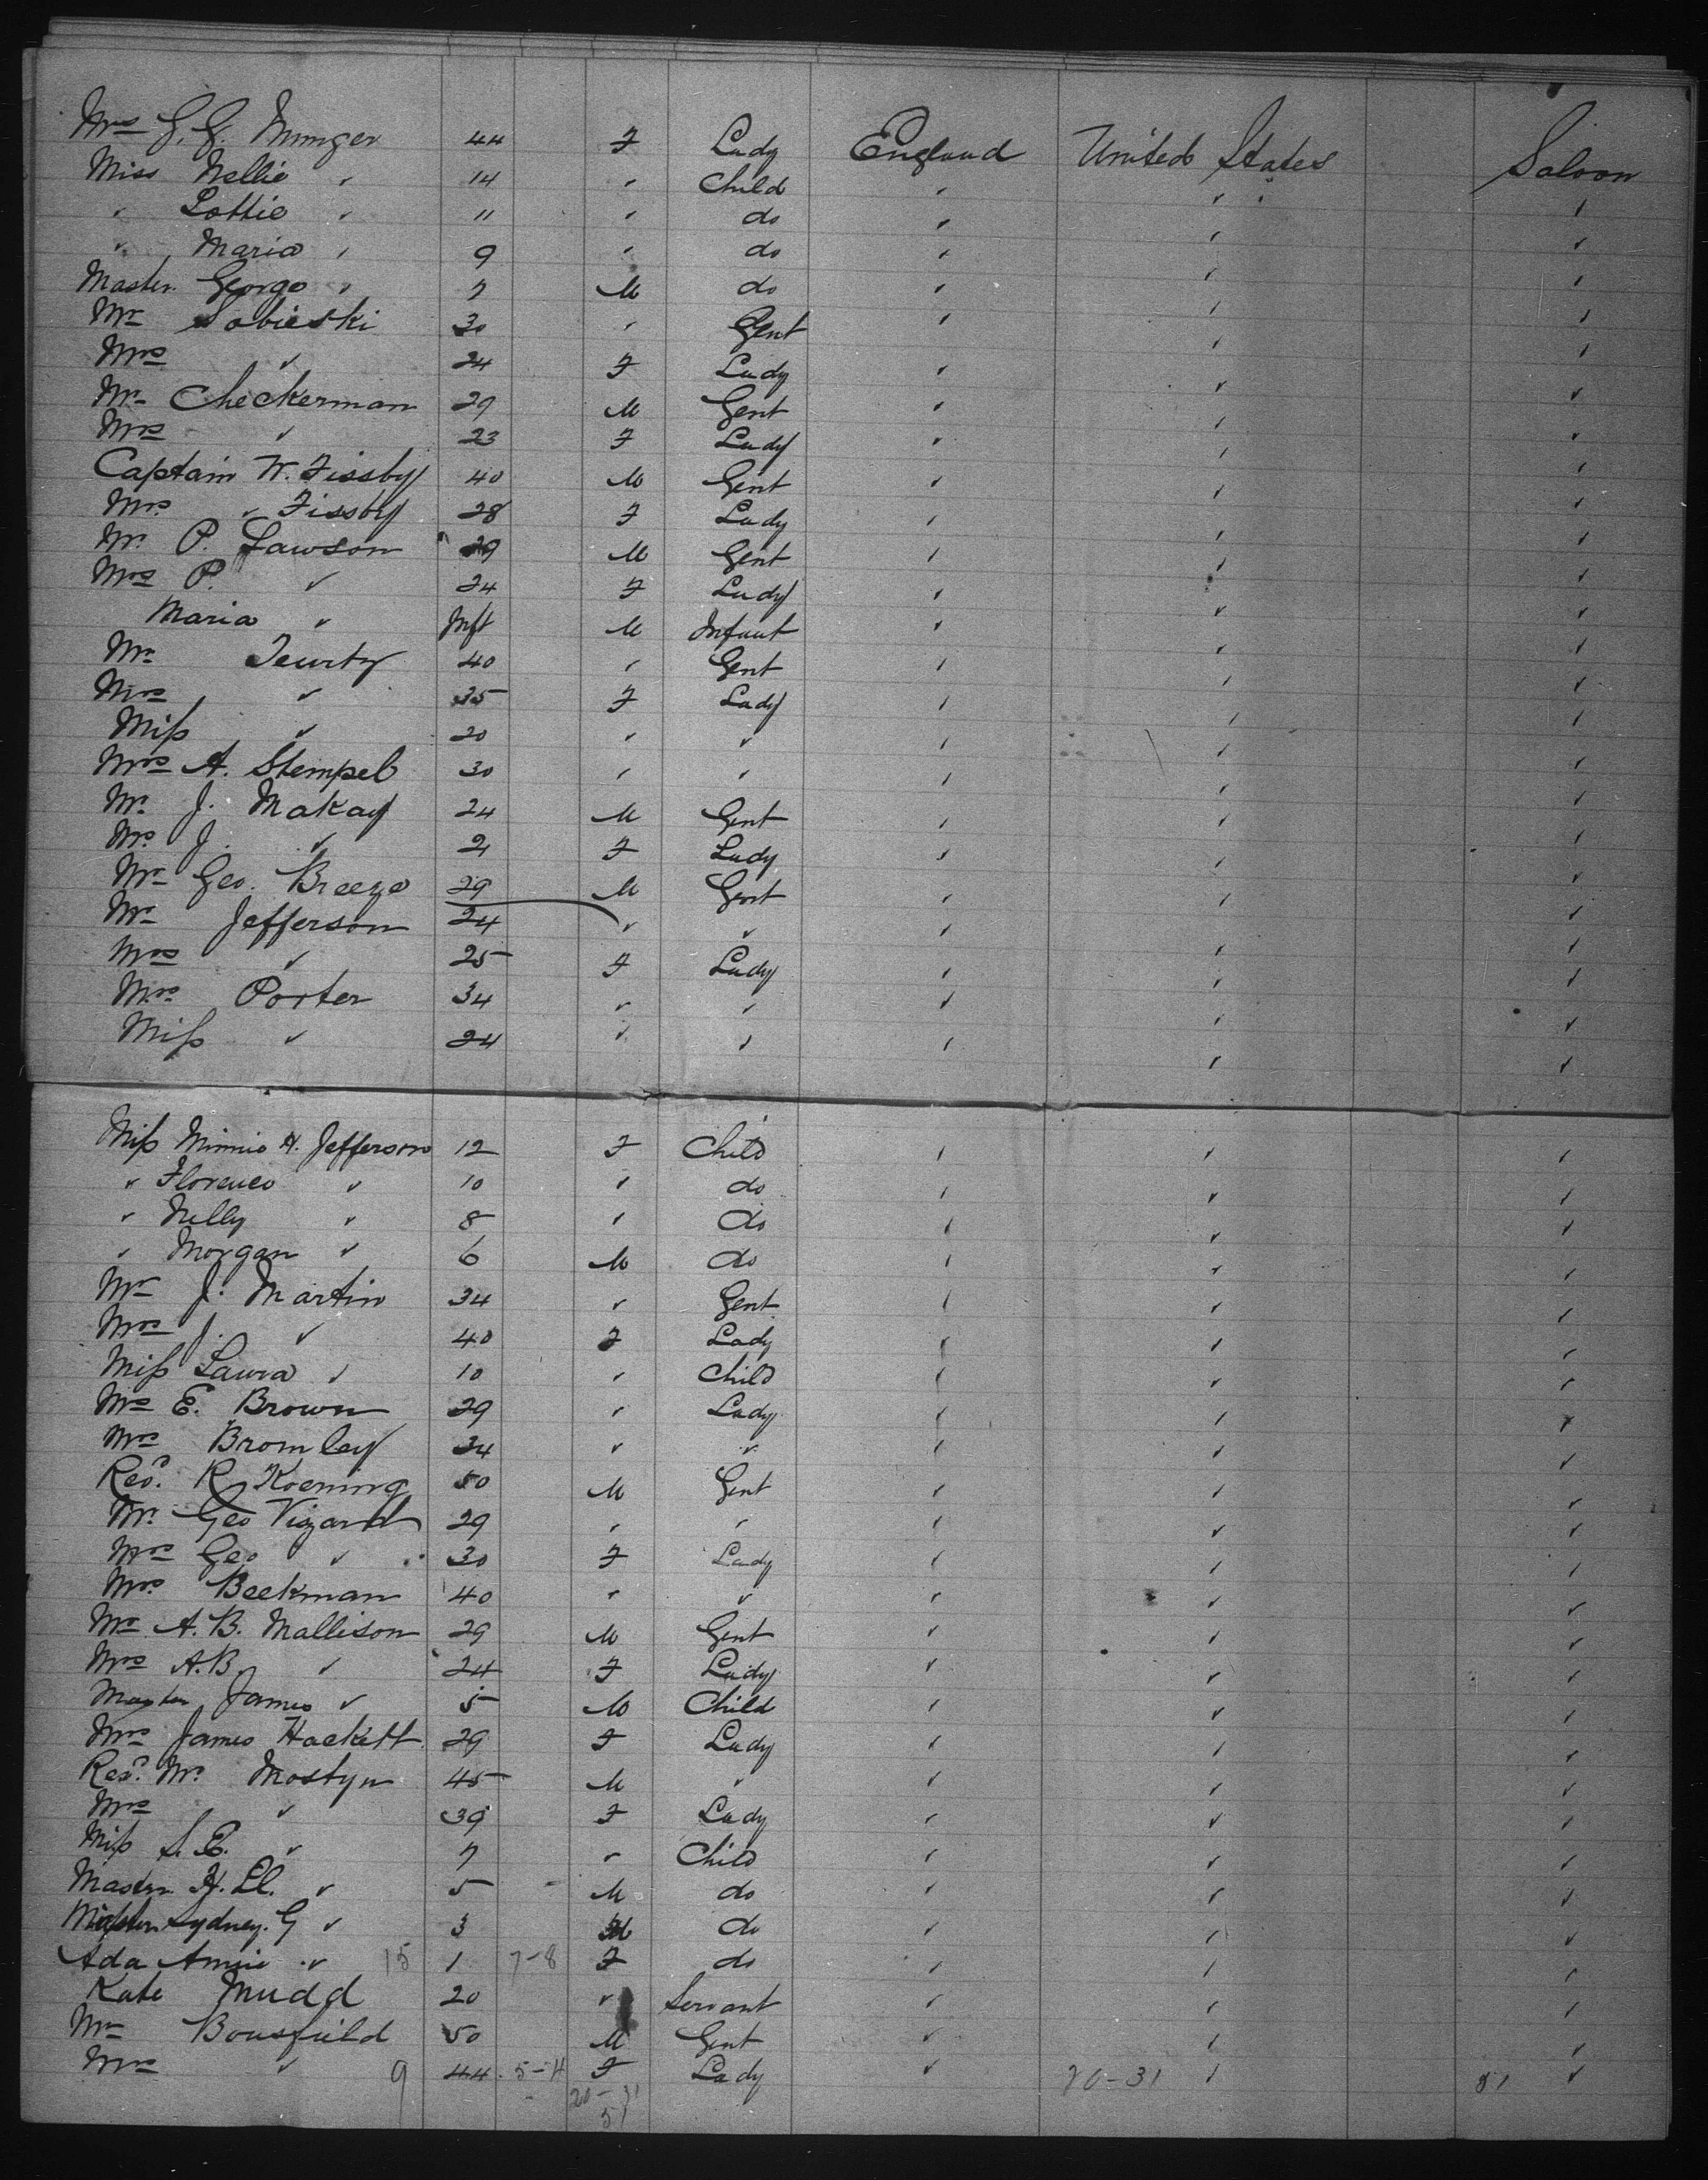 Mrs G. G. Munger 44 F Lady England United States Saloon
Miss Nellie " 14 " Child " " "
" Lottie " 11 " do " " "
" Maria " 9 " do " " "
Master George " 7 M do " " "
Mr Sobieski 30 " Gent " " "
Mrs " 24 F Lady " " "
Mr Checkerman 29 M Gent " " "
Mrs " 23 F Lady " " "
Captain W. Fissby 40 M Gent " " "
Mrs " Fissby 28 F Lady " " "
Mr P. Lawson 29 M Gent " " "
Mrs P. " 24 F Lady " " "
Maria " Inft M Infant " " "
Mr 40 " Gent " " "
Mrs " 35 F Lady " " "
Miss " 20 " " " " "
Mrs A. Stempel 30 " " " " "
Mr J. Makay 24 M Gent " " "
Mrs J. " 21 F Lady " " "
Mr Geo. Breeze 29 M Gent " " "
Mr Jefferson 24 " " " " "
Mrs " 25 F Lady " " "
Mrs Porter 34 " " " " "
Miss " 24 " " " " "
Miss Minnie H. Jefferson 12 F Child " " "
" Florence " 10 " do " " "
" Nelly " 8 " do " " "
" Morgan " 6 M do " " "
Mr J. Martin 34 " Gent " " "
Mrs J. " 40 F Lady " " "
Miss Laura " 10 " Child " " "
Mrs E. Brown 29 " Lady " " "
Mrs Bromley 34 " " " " "
Revd. R. Koening 50 M Gent " " "
Mr Geo Vizard 29 " " " " "
Mrs Geo " 30 F Lady " " "
Mrs Beekman 40 " " " " "
Mr A. B. Mallison 29 M Gent " " "
Mrs A. B. " 24 F Lady " " "
Master James " 5 M Child " " "
Mrs James Hackett 29 F Lady " " "
Revd. Mr Mostyn 45 M " " " "
Mrs " 39 F Lady " " "
Miss S. E. " 7 " Child " " "
Master H. Ll. " 5 M do " " "
Master Sydney. G " 3 M do " " "
Ada Annie " 15 1 7-8 F do " " "
Kate Mudd 20 " Servant " " "
Mr Bousfield 50 M Gent " " "
Mrs " 9 44 5-4 F Lady " 20-31 " 51 "
20-31
51